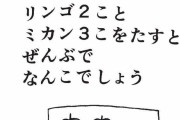 リンゴ2こと
ミカン3こをたすと
ぜんぶで
なんこでしょう